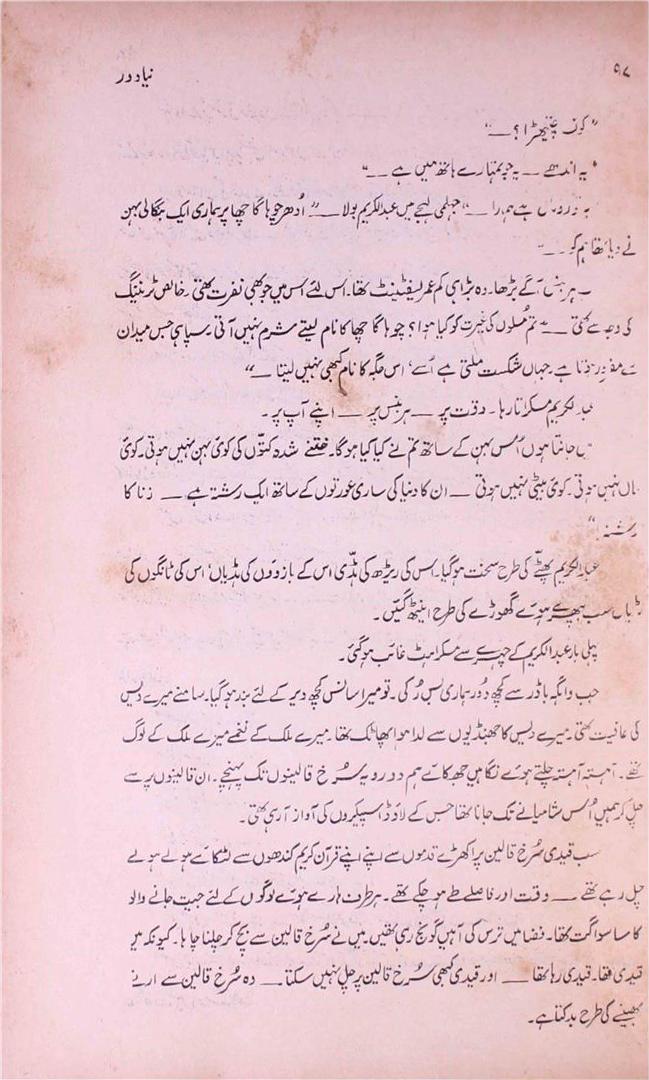 ۹۷
نیا دور
"کون چیتھڑا؟ ــــ"
"یہ اندھے ــــ یہ جو تمہارے ہاتھ میں ہے ــــ"
ہے ہمرا ــــ" جہلمی لہجے میں عبدالکریم بولا ــــ "اُدھر جوہا گا چھا پر ہماری ایک بنگالی بہن
نے دیا تھا ہم کو ــــ
ہر بنس آگے بڑھا۔ وہ بڑا ہی کم عمر لیفٹیننٹ تھا۔ اس لئے اس میں جو بھی نفرت تھی۔ خالص ٹریننگ
کی وجہ سے تھی ــــ تم مُسلوں کی غیرت کو کیا ہوا؟ جوہا گا چھا کا نام لیتے شرم نہیں آتی۔ سپاہی جس میدان
سے ہے۔ جہاں شکست ملتی ہے اُسے، اس جگہ کا نام کبھی نہیں لیتا ــــ"
عبدالکریم مسکراتا رہا۔ وقت پر ــــ ہر بنس پر ــــ اپنے آپ پر۔
میں جانتا ہوں اُس بہن کے ساتھ تم نے کیا کیا ہوگا۔ ختنے شدہ کتوں کی کوئی بہن نہیں ہوتی۔ کوئی
ماں نہیں ہوتی۔ کوئی بیٹی نہیں ہوتی ــــ ان کا دنیا کی ساری عورتوں کے ساتھ ایک رشتہ ہے ــــ زنا کا
رشتہ۔"
عبدالکریم پٹھے کی طرح سخت ہوگیا۔ اس کی ریڑھ کی ہڈی اس کے بازوؤں کی ہڈیاں، اس کی ٹانگوں کی
ہڈیاں سب بپھرے ہوئے گھوڑے کی طرح اینٹھ گئیں۔
پہلی بار عبدالکریم کے چہرے سے مسکراہٹ غائب ہوگئی۔
جب واہگہ باڈر سے کچھ دُور ہماری بس رُکی۔ تو میرا سانس کچھ دیر کے لئے بند ہوگیا۔ سامنے میرے دیس
کی عافیت تھی۔ میرے دیس کا جھنڈیوں سے لدا ہوا پھاٹک تھا۔ میرے ملک کے نغمے میرے ملک کے لوگ
تھے۔ آہستہ آہستہ چلتے ہوئے نگاہیں جھکائے ہم دو رویہ سُرخ قالینوں تک پہنچے۔ ان قالینوں پر سے
چل کر ہمیں اُس شامیانے تک جانا تھا جس کے لاؤڈ اسپیکروں کی آواز آرہی تھی۔
سب قیدی سُرخ قالین پر اکھڑے قدموں سے اپنے اپنے قرآن کریم کندھوں سے لٹکائے ہولے ہولے
چل رہے تھے ــــ وقت اور فاصلے طے ہو چکے تھے۔ ہر طرف ہارے ہوئے لوگوں کے لئے جیت جانے والوں
کا سا سواگت تھا۔ فضا میں ترس کی آہیں گونج رہی تھیں۔ میں نے سُرخ قالین سے بچ کر چلنا چاہا۔ کیونکہ میں
قیدی تھا۔ قیدی رہا تھا ــــ اور قیدی کبھی سُرخ قالین پر چل نہیں سکتا ــــ وہ سُرخ قالین سے ارنے
بھینسے کی طرح بدکتا ہے۔